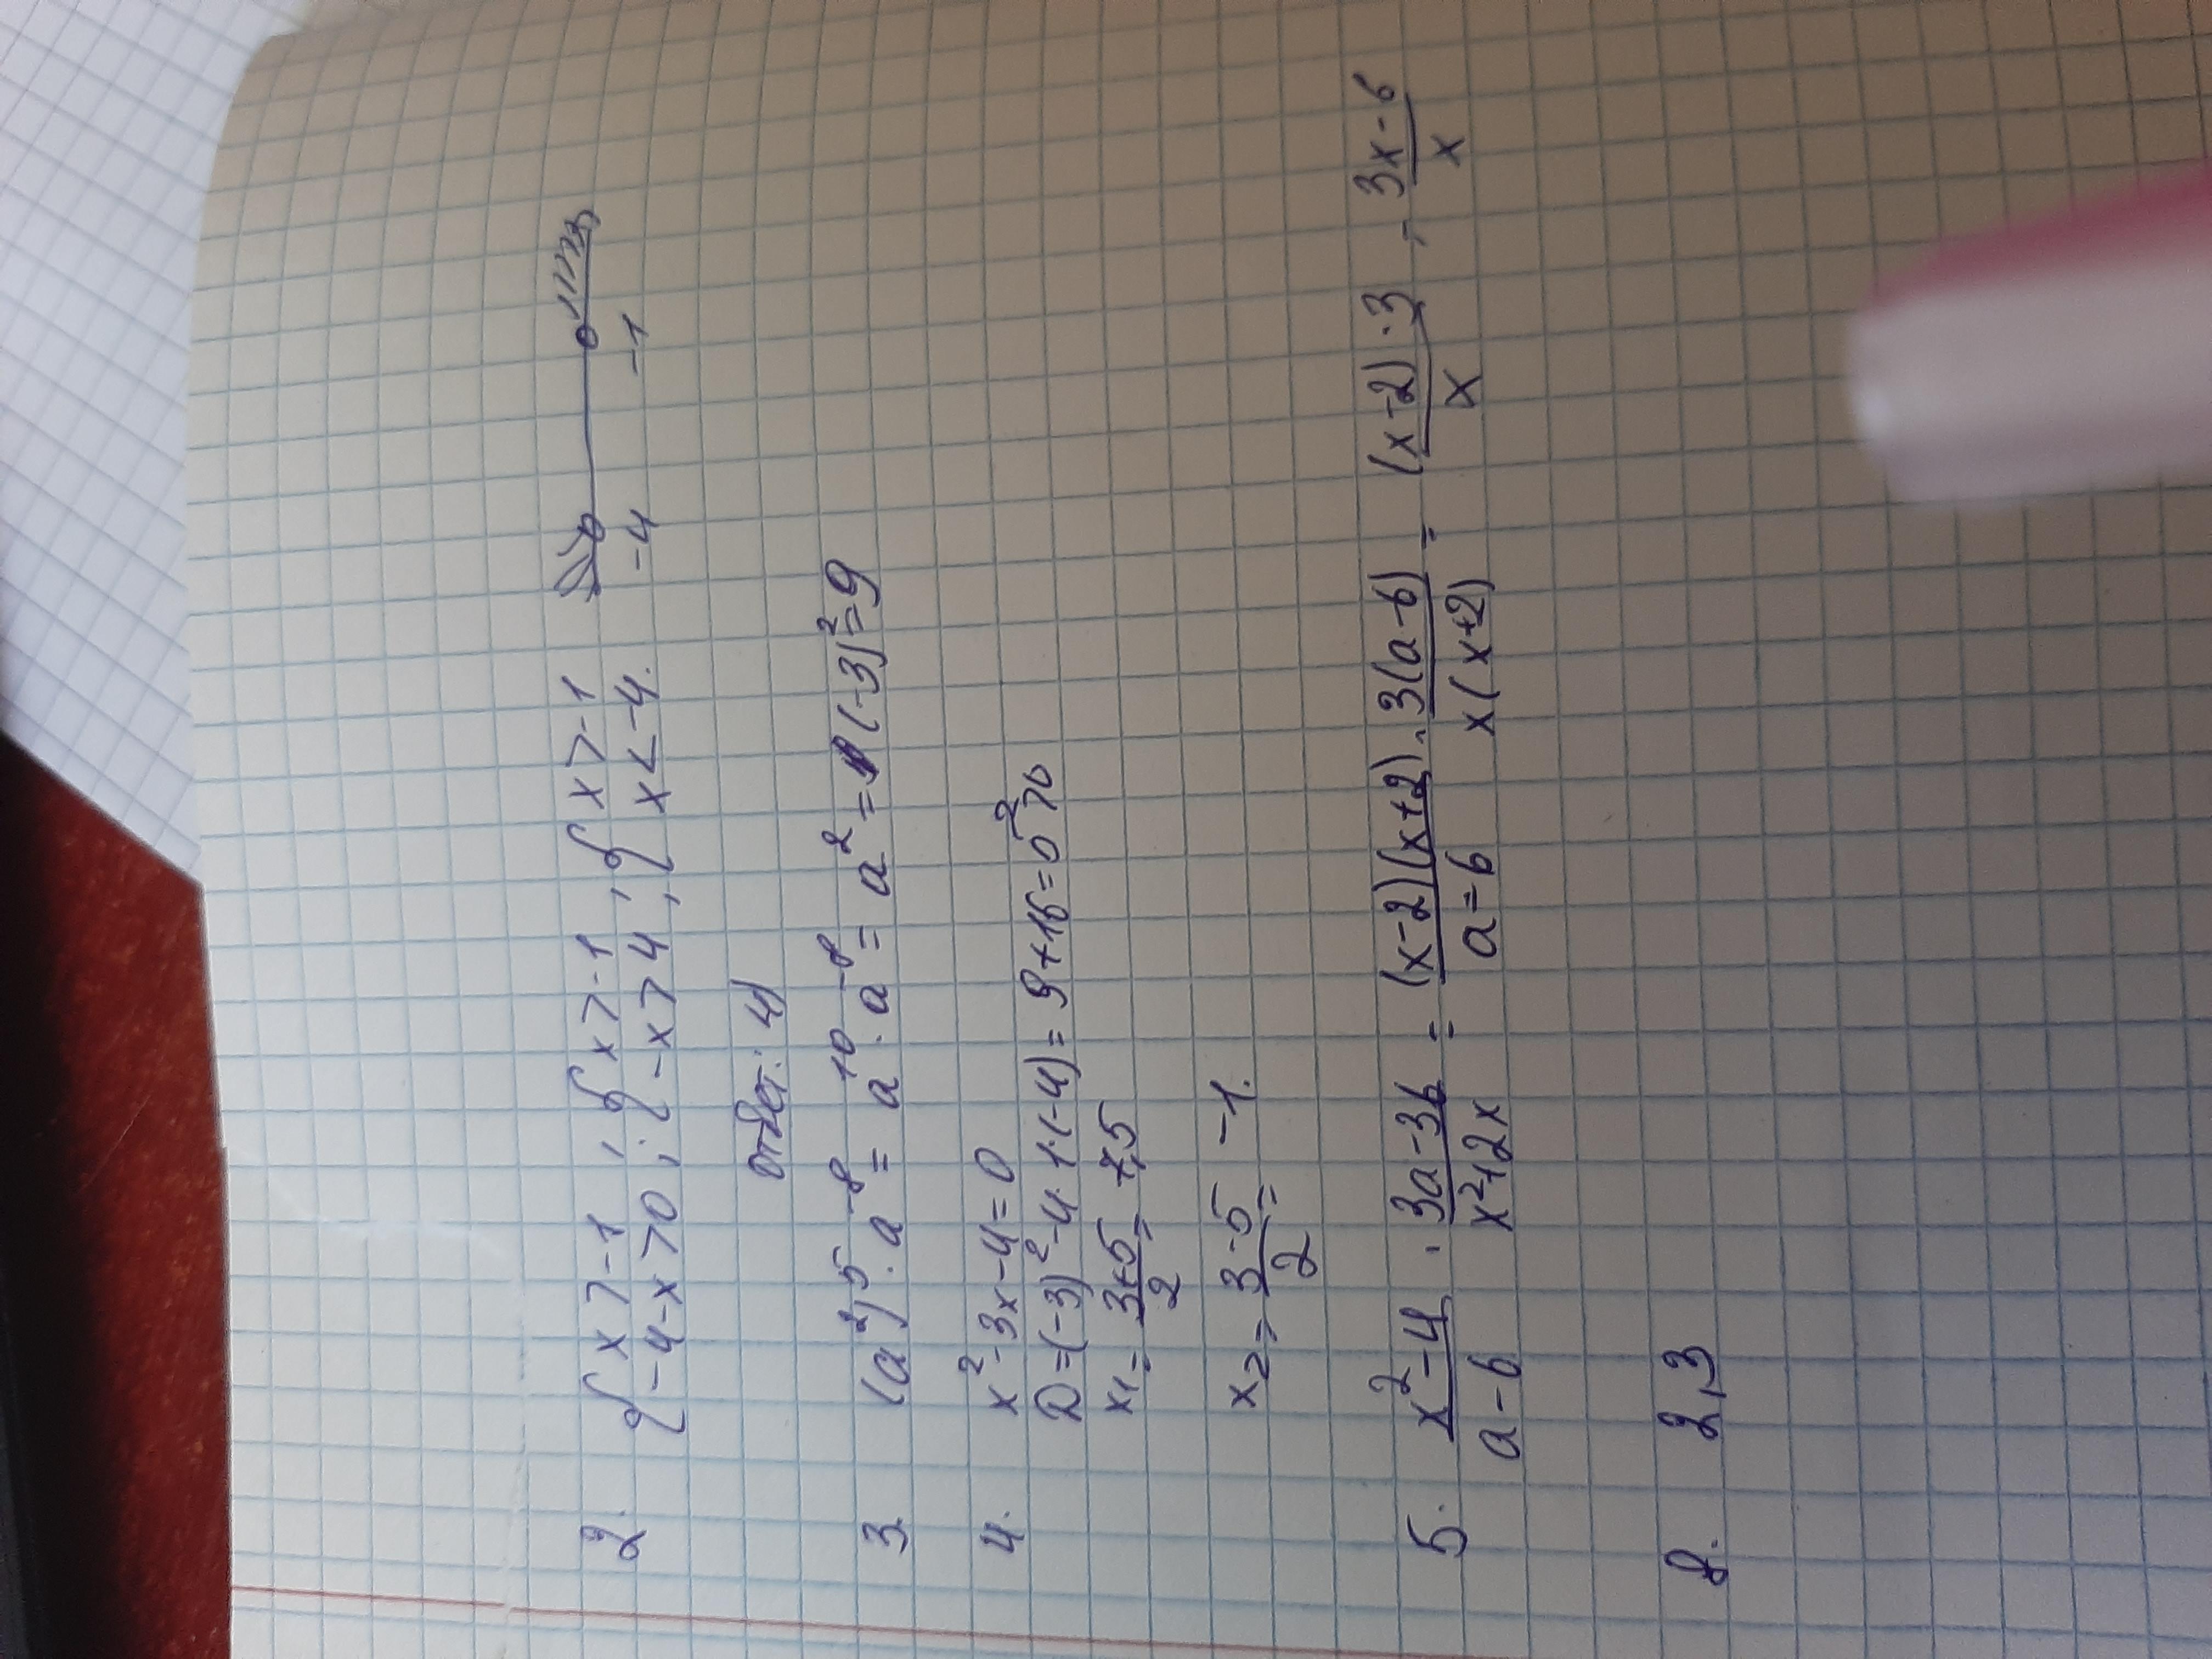 2. { x > -1 ; { x > -1 ; { x > -1
-4 - x > 0 ; -x > 4 ; x < -4.
-4 -1
ответ: 4)
3 (a²)⁵ · a⁻⁸ = a¹⁰ · a⁻⁸ = a² = (-3)² = 9
4. x² - 3x - 4 = 0
D = (-3)² - 4 · 1 · (-4) = 9 + 16 = 5² > 0
x₁ = (3+5)/2 = 7,5
x₂ = (3-5)/2 = -1.
5. (x² - 4)/(a - b) · (3a - 3b)/(x² + 2x) = ((x-2)(x+2))/(a = b) · (3(a-b))/(x(x+2)) = ((x-2) · 3)/x = (3x - 6)/x
8. 2,3